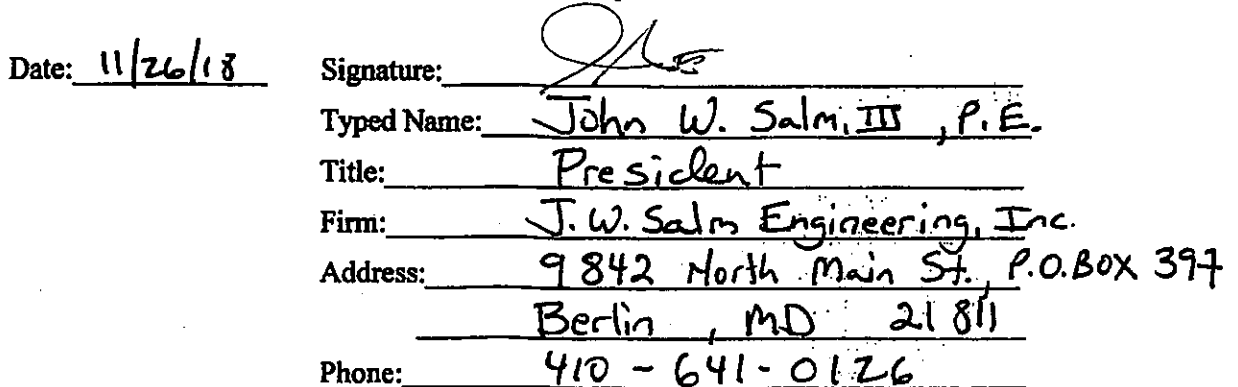 Date: 11/26/18 Signature:
Typed Name: John W. Salm, III, P.E.
Title: President
Firm: J.W. Salm Engineering, Inc.
Address: 9842 North Main St., P.O.BOX 397
Berlin, MD 21811
Phone: 410-641-0126